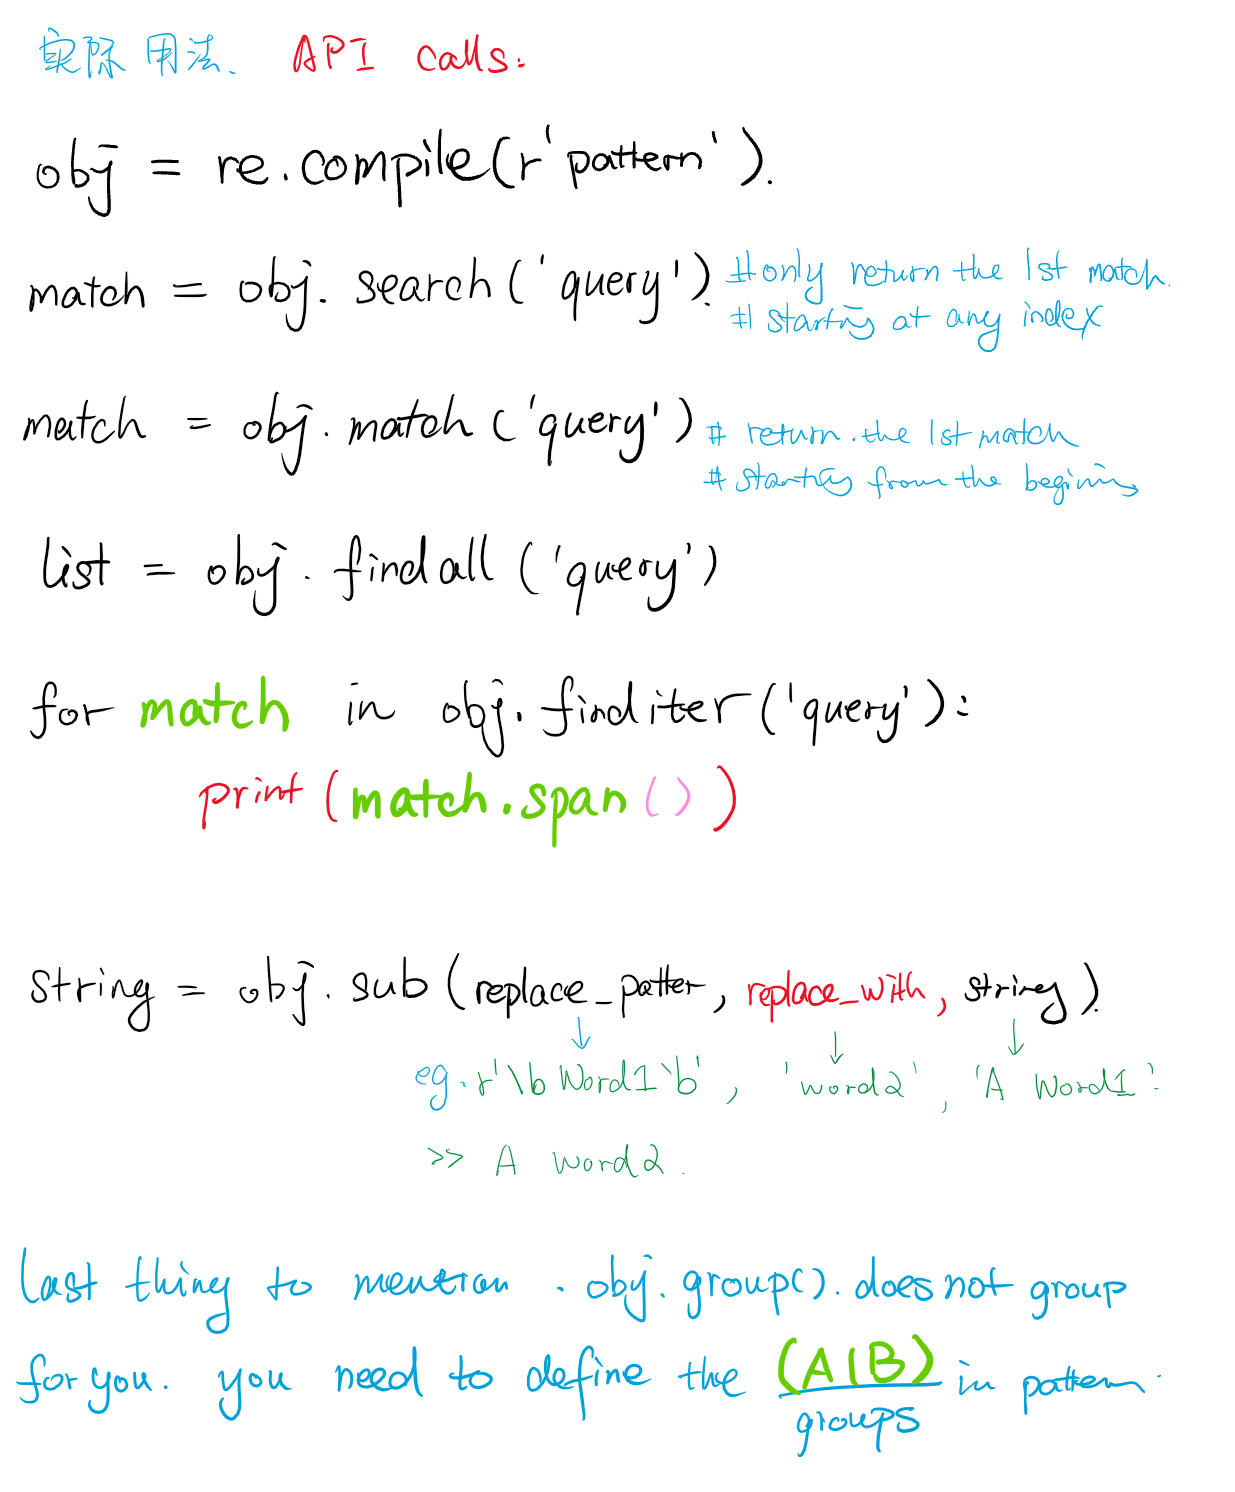 实际用法. API calls:
obj = re.compile(r'pattern').
match = obj. search('query'). #only return the 1st match.
# starting at any index
match = obj. match('query') # return the 1st match
# starting from the begining
list = obj. findall('query')
for match in obj. finditer('query'):
print(match.span())
string = obj. sub(replace_patter, replace_with, string).
eg. r'\b Word1\b', 'word2', 'A Word1'.
>> A word2.
last thing to mention. obj. group(). does not group
for you. you need to define the (A|B) in pattern.
groups